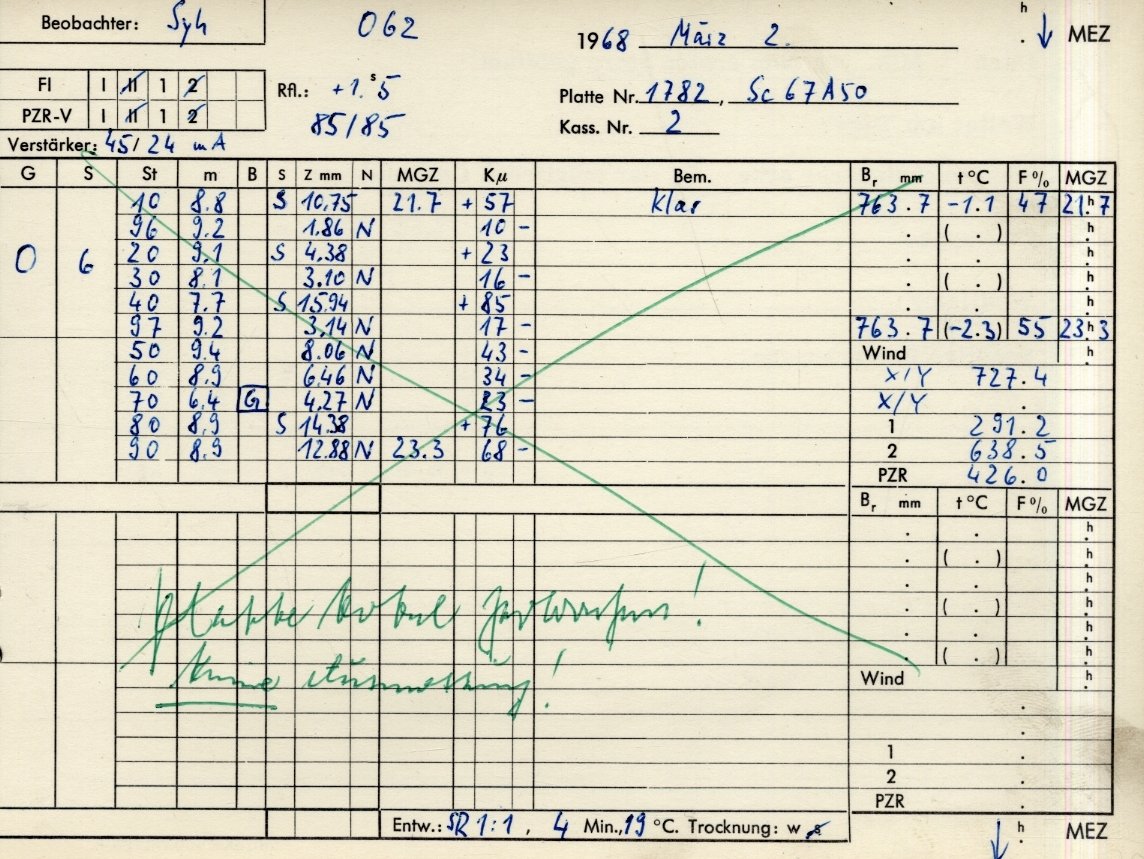 Beobachter: Syh 062 1968 März 2. h . ↓ MEZ
FI I II 1 2 Rfl.: +1.ˢ5 Platte Nr. 1782, Sc 67A50
PZR-V I II 1 2 85/85 Kass. Nr. 2
Verstärker: 45/24 mA
G S St m B S Z mm N MGZ Kμ Bem. Bᵣ mm t °C F % MGZ
10 8.8 S 10.75 21.7 + 57 Klar 763.7 -1.1 47 21ʰ.7
96 9.2 1.86 N 10 - . ( . ) h .
0 6 20 9.1 S 4.38 + 23 . . h .
30 8.1 3.10 N 16 - . ( . ) h .
40 7.7 S 15.94 + 85 . . h .
97 9.2 3.14 N 17 - 763.7 (-2.3) 55 23ʰ.3
50 9.4 8.06 N 43 - Wind h .
60 8.9 6.46 N 34 - X/Y 727.4
70 6.4 G 4.27 N 23 - X/Y .
80 8.9 S 14.38 + 76 1 291.2
90 8.9 12.88 N 23.3 68 - 2 638.5
PZR 426.0
Bᵣ mm t °C F % MGZ
. . h .
. ( . ) h .
. . h .
. ( . ) h .
. . h .
. ( . ) h .
Wind h .
Platte total !
Keine Ausmessung!
.
.
1 .
2 .
PZR .
Entw.: SR 1:1, 4 Min., 19 °C. Trocknung: w s
↓ h . MEZ